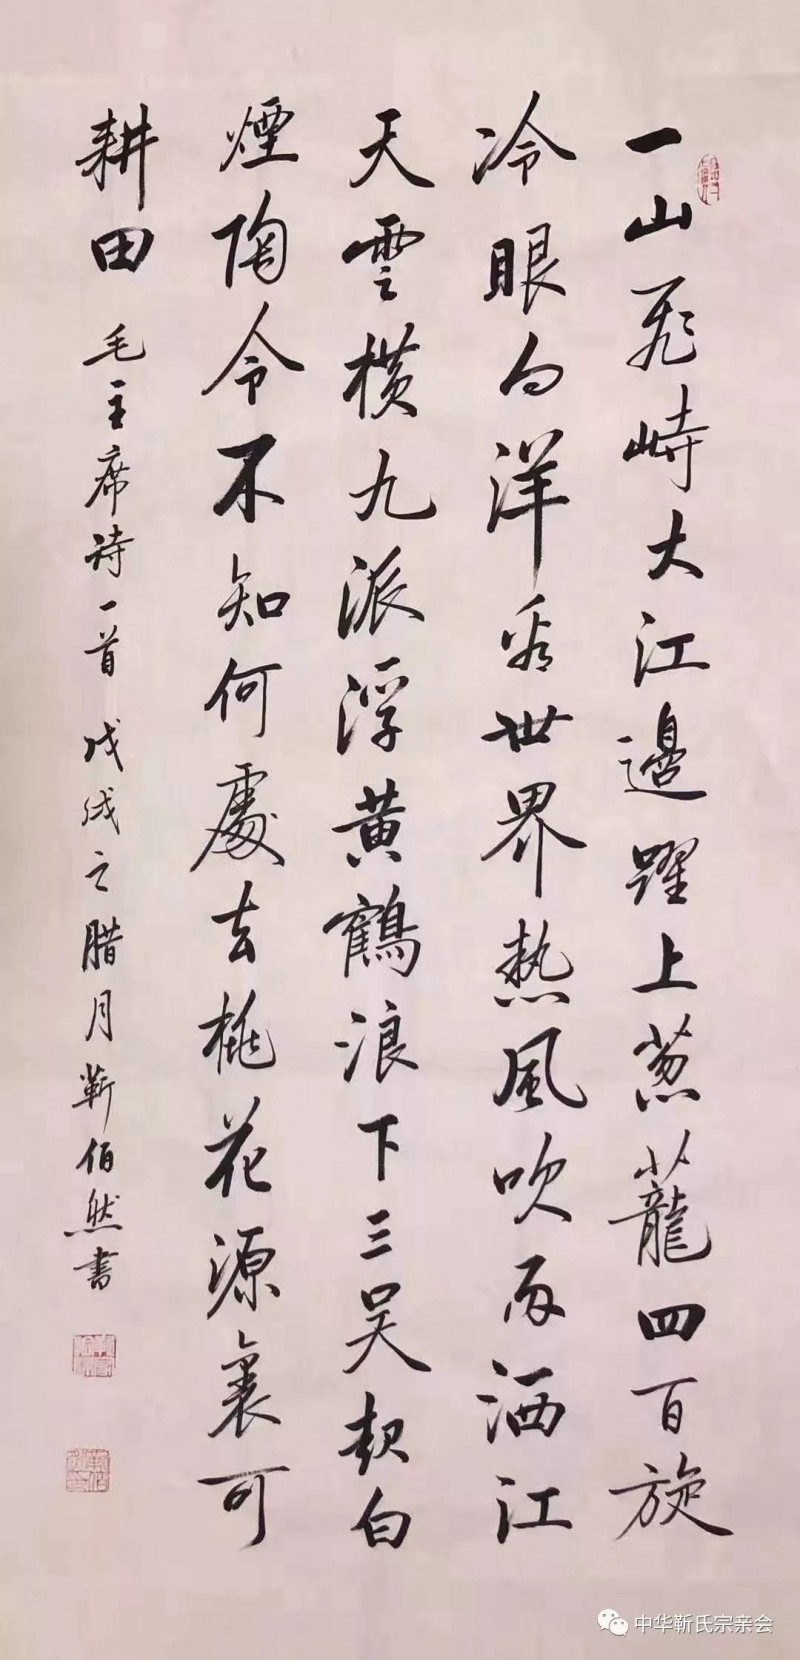 一山飛峙大江邊躍上葱蘢四百旋
冷眼向洋看世界熱風吹雨洒江
天雲橫九派浮黄鶴浪下三吴起白
煙陶令不知何處去桃花源裏可
耕田 毛主席诗一首 戊戌之腊月靳伯然書
中华靳氏宗亲会